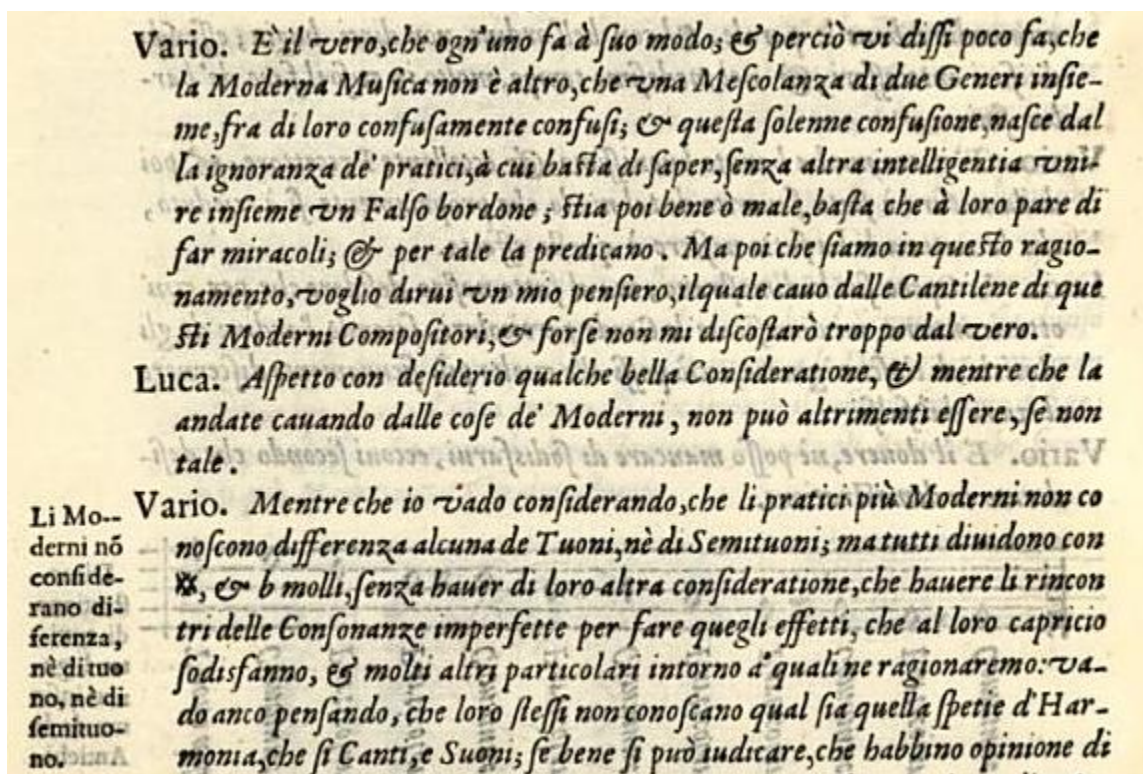 Vario. E' il vero, che ogn'uno fa à ſuo modo; & perciò vi diſſi poco fa, che
la Moderna Muſica non è altro, che vna Meſcolanza di due Generi inſie-
me, fra di loro confuſamente confuſi; & queſta ſolenne confuſione, naſce dal
la ignoranza de' pratici, à cui baſta di ſaper, ſenza altra intelligentia vni-
re inſieme vn Falſo bordone; ſtia poi bene ò male, baſta che à loro pare di
far miracoli; & per tale la predicano. Ma poi che ſiamo in queſto ragio-
namento, voglio dirui vn mio penſiero, ilquale cauo dalle Cantilene di que
ſti Moderni Compoſitori, & forſe non mi diſcoſtarò troppo dal vero.
Luca. Aſpetto con deſiderio qualche bella Conſideratione, & mentre che la
andate cauando dalle coſe de' Moderni, non può altrimenti eſſere, ſe non
tale.
Vario. Mentre che io vado conſiderando, che li pratici più Moderni non co
noſcono differenza alcuna de Tuoni, nè di Semituoni; ma tutti diuidono con
※, & b molli, ſenza hauer di loro altra conſideratione, che hauere li rincon
tri delle Conſonanze imperfette per fare quegli effetti, che al loro capricio
ſodisfanno, & molti altri particolari intorno a' quali ne ragionaremo: va-
do anco penſando, che loro ſteſſi non conoſcano qual ſia quella ſpetie d'Har-
monia, che ſi Canti, e Suoni; ſe bene ſi può iudicare, che habbino opinione di
Li Mo--
derni nõ
conſide-
rano di-
ferenza,
nè di tuo
no, nè di
ſemituo-
no.